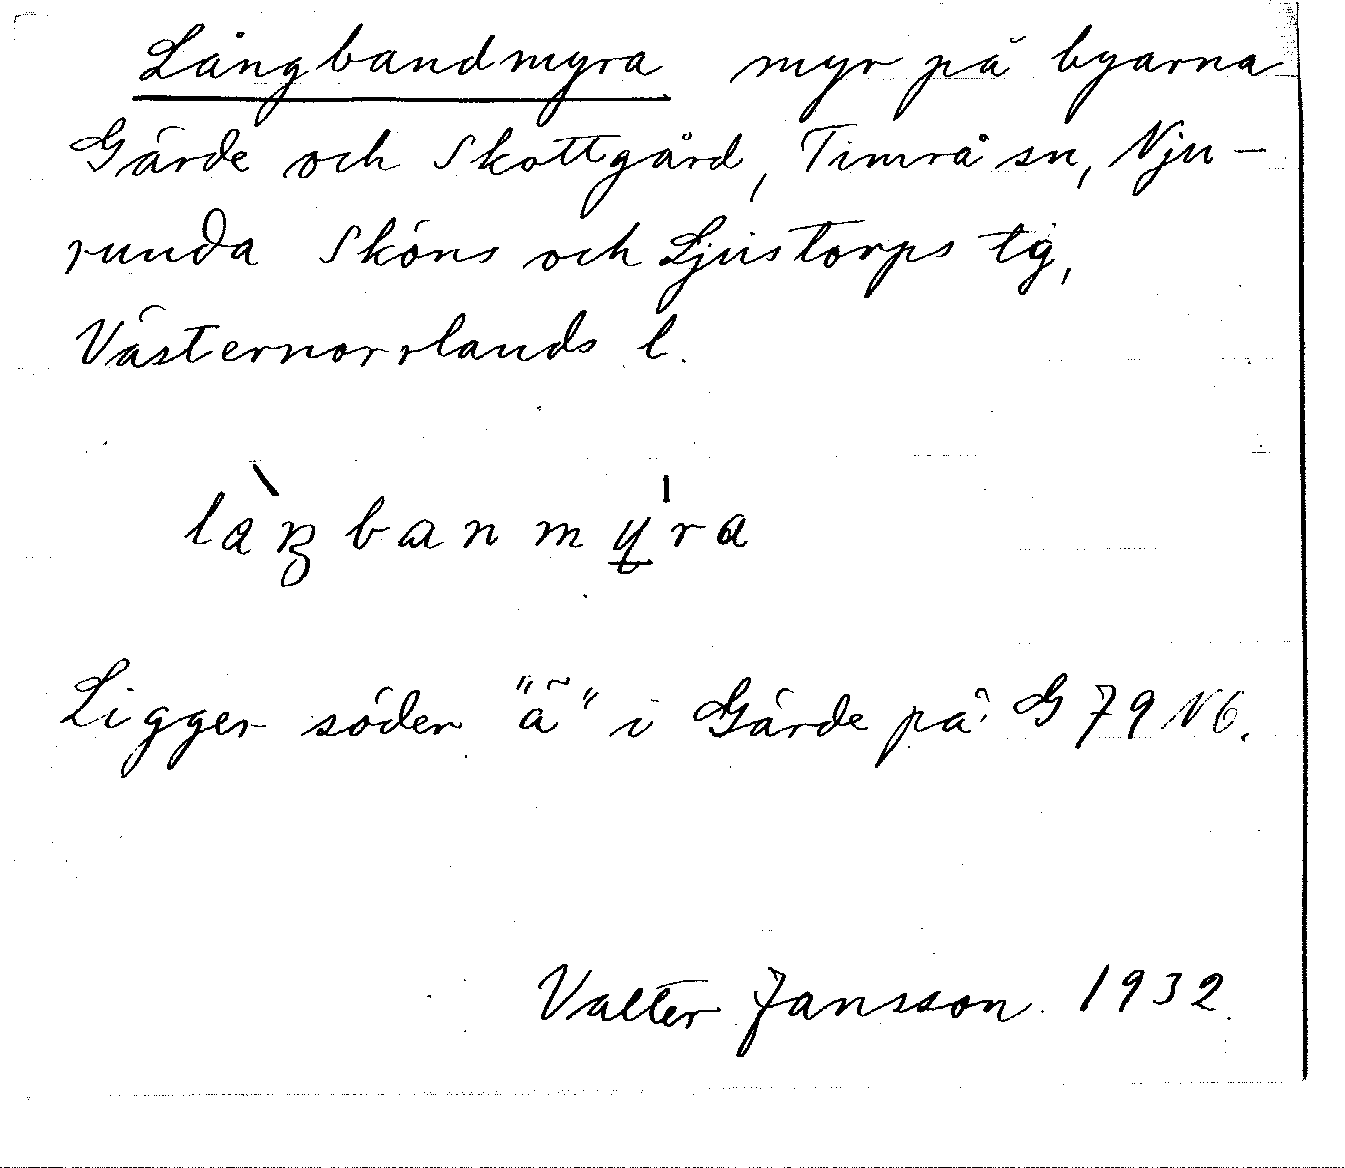 Långbandmyra myr på byarna
Gärde och Skottgård, Timrå sn, Nju-
runda Sköns och Ljustorps tg,
Västernorrlands l.
làŋbanmy̱ˈra
Ligger söder "å" i Gärde på G 79 N6.
Valter Jansson 1932.